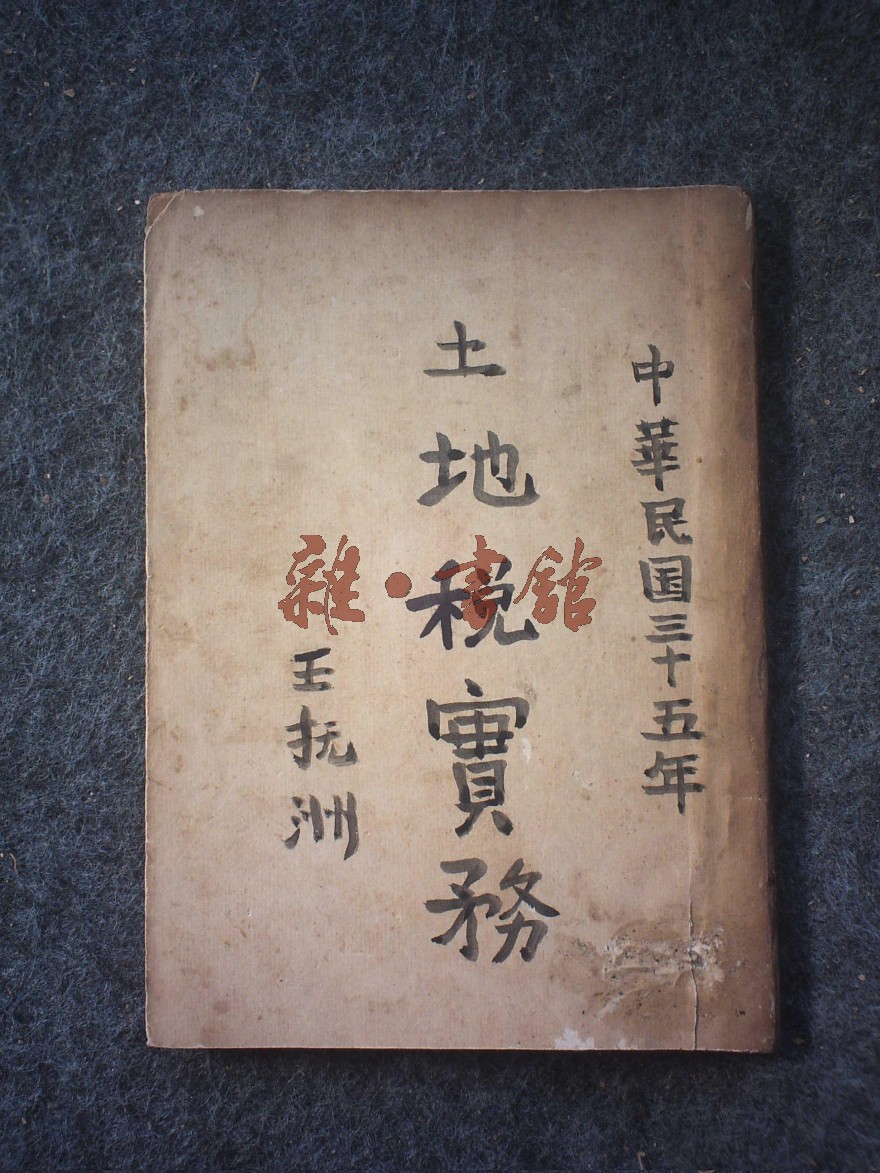 中華民国三十五年
土地税實務
王抚洲
雜·書館